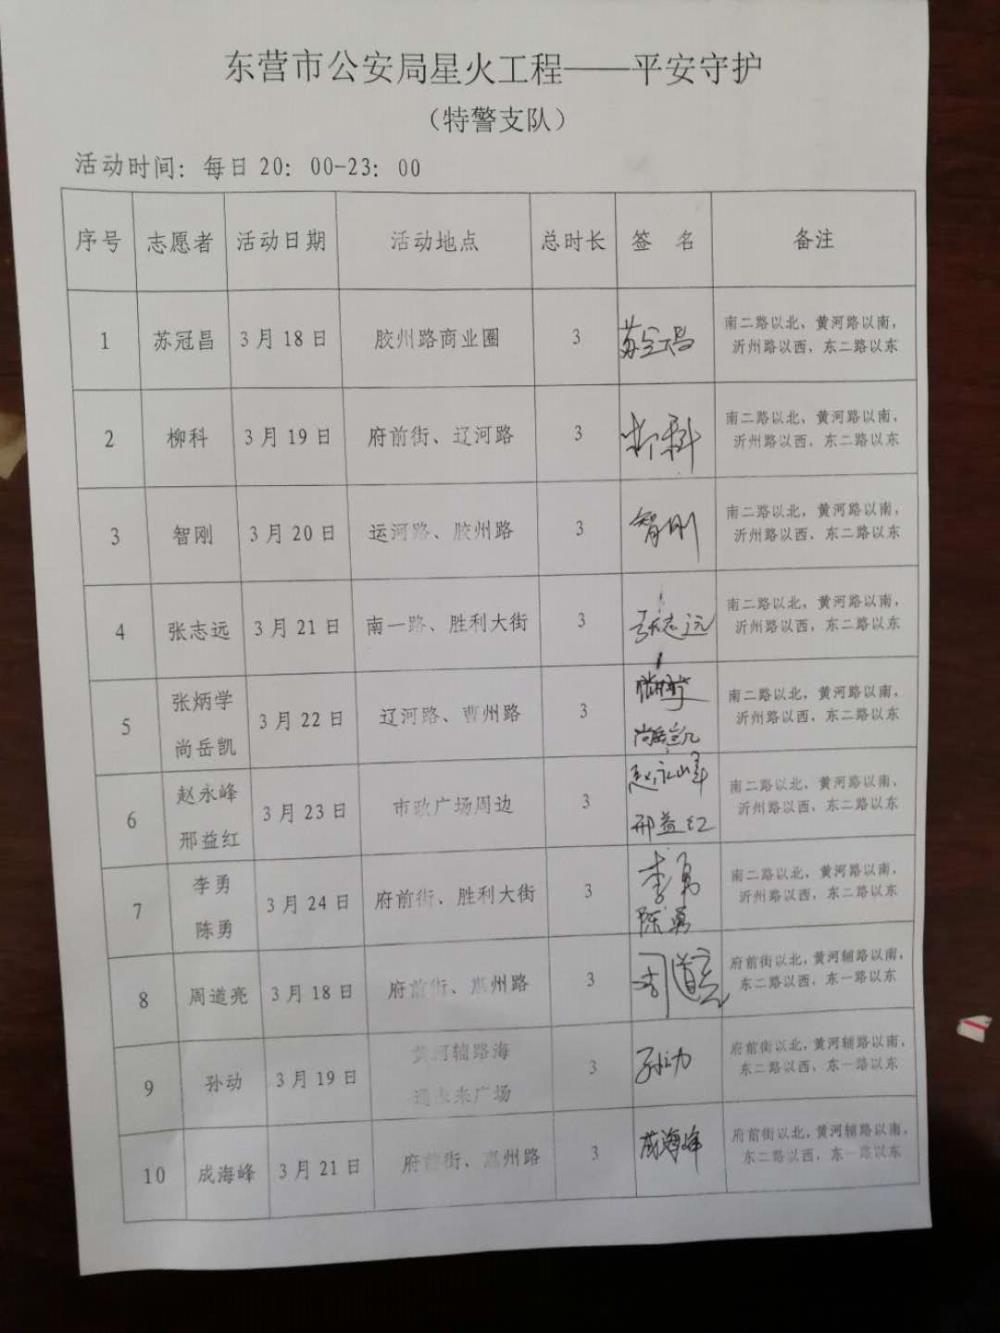 东营市公安局星火工程——平安守护
（特警支队）
活动时间：每日20：00-23：00
序号 志愿者 活动日期 活动地点 总时长 签 名 备注
1 苏冠昌 3月18日 胶州路商业圈 3 苏冠昌 南二路以北，黄河路以南，
沂州路以西，东二路以东
2 柳科 3月19日 府前街、辽河路 3 柳科 南二路以北，黄河路以南，
沂州路以西，东二路以东
3 智刚 3月20日 运河路、胶州路 3 智刚 南二路以北，黄河路以南，
沂州路以西，东二路以东
4 张志远 3月21日 南一路、胜利大街 3 张志远 南二路以北，黄河路以南，
沂州路以西，东二路以东
5 张炳学 3月22日 辽河路、曹州路 3 南二路以北，黄河路以南，
尚岳凯 尚岳凯 沂州路以西，东二路以东
6 赵永峰 3月23日 市政广场周边 3 赵永峰 南二路以北，黄河路以南，
邢益红 邢益红 沂州路以西，东二路以东
7 李勇 3月24日 府前街、胜利大街 3 李勇 南二路以北，黄河路以南，
陈勇 陈勇 沂州路以西，东二路以东
8 周道亮 3月18日 府前街、惠州路 3 周道亮 府前街以北，黄河辅路以南，
东二路以西，东一路以东
9 孙动 3月19日 黄河辅路海 3 孙动 府前街以北，黄河辅路以南，
通未来广场 东二路以西，东一路以东
10 成海峰 3月21日 府前街、惠州路 3 成海峰 府前街以北，黄河辅路以南，
东二路以西，东一路以东